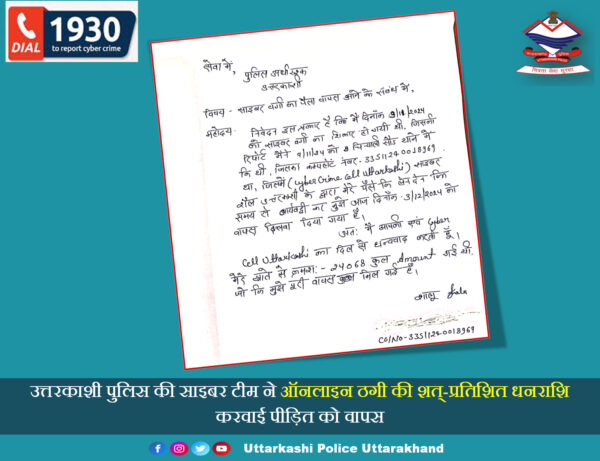 DIAL
1930
to report cyber crime
सेवा में,
पुलिस अधीक्षक
उत्तरकाशी
विषय - साइबर ठगी का पैसा वापस आने के संबंध में,
महोदय,
निवेदन इस प्रकार है कि मैं दिनांक 9/11/2024
को साइबर ठगी का शिकार हो गयी थी, जिसकी
रिपोर्ट मैंने 9/11/24 को चिन्यालीसौड़ थाने में
कि थी, जिसका कम्पलेंट नंबर - 33511240018969
था, जिसमें (Cyber Crime Cell Uttarkashi) साइबर
सैल उत्तरकाशी के द्वारा मेरे पैसे कि लेन देन कि
समय से कार्यवाही कर मुझे आज दिनांक 3/12/2024 को
वापस दिलवा दिया गया है।
अतः मैं आपकी एवं Cyber
Cell Uttarkashi का दिल से धन्यवाद करती हूँ।
मेरे खाते से क्रमशः - 24068 कुल Amount गई थी
जो कि मुझे पूरी वापस मिल गई है।
C0/NO-33511240018969
उत्तरकाशी पुलिस की साइबर टीम ने ऑनलाइन ठगी की शत्-प्रतिशित धनराशि
करवाई पीड़ित को वापस
Uttarkashi Police Uttarakhand